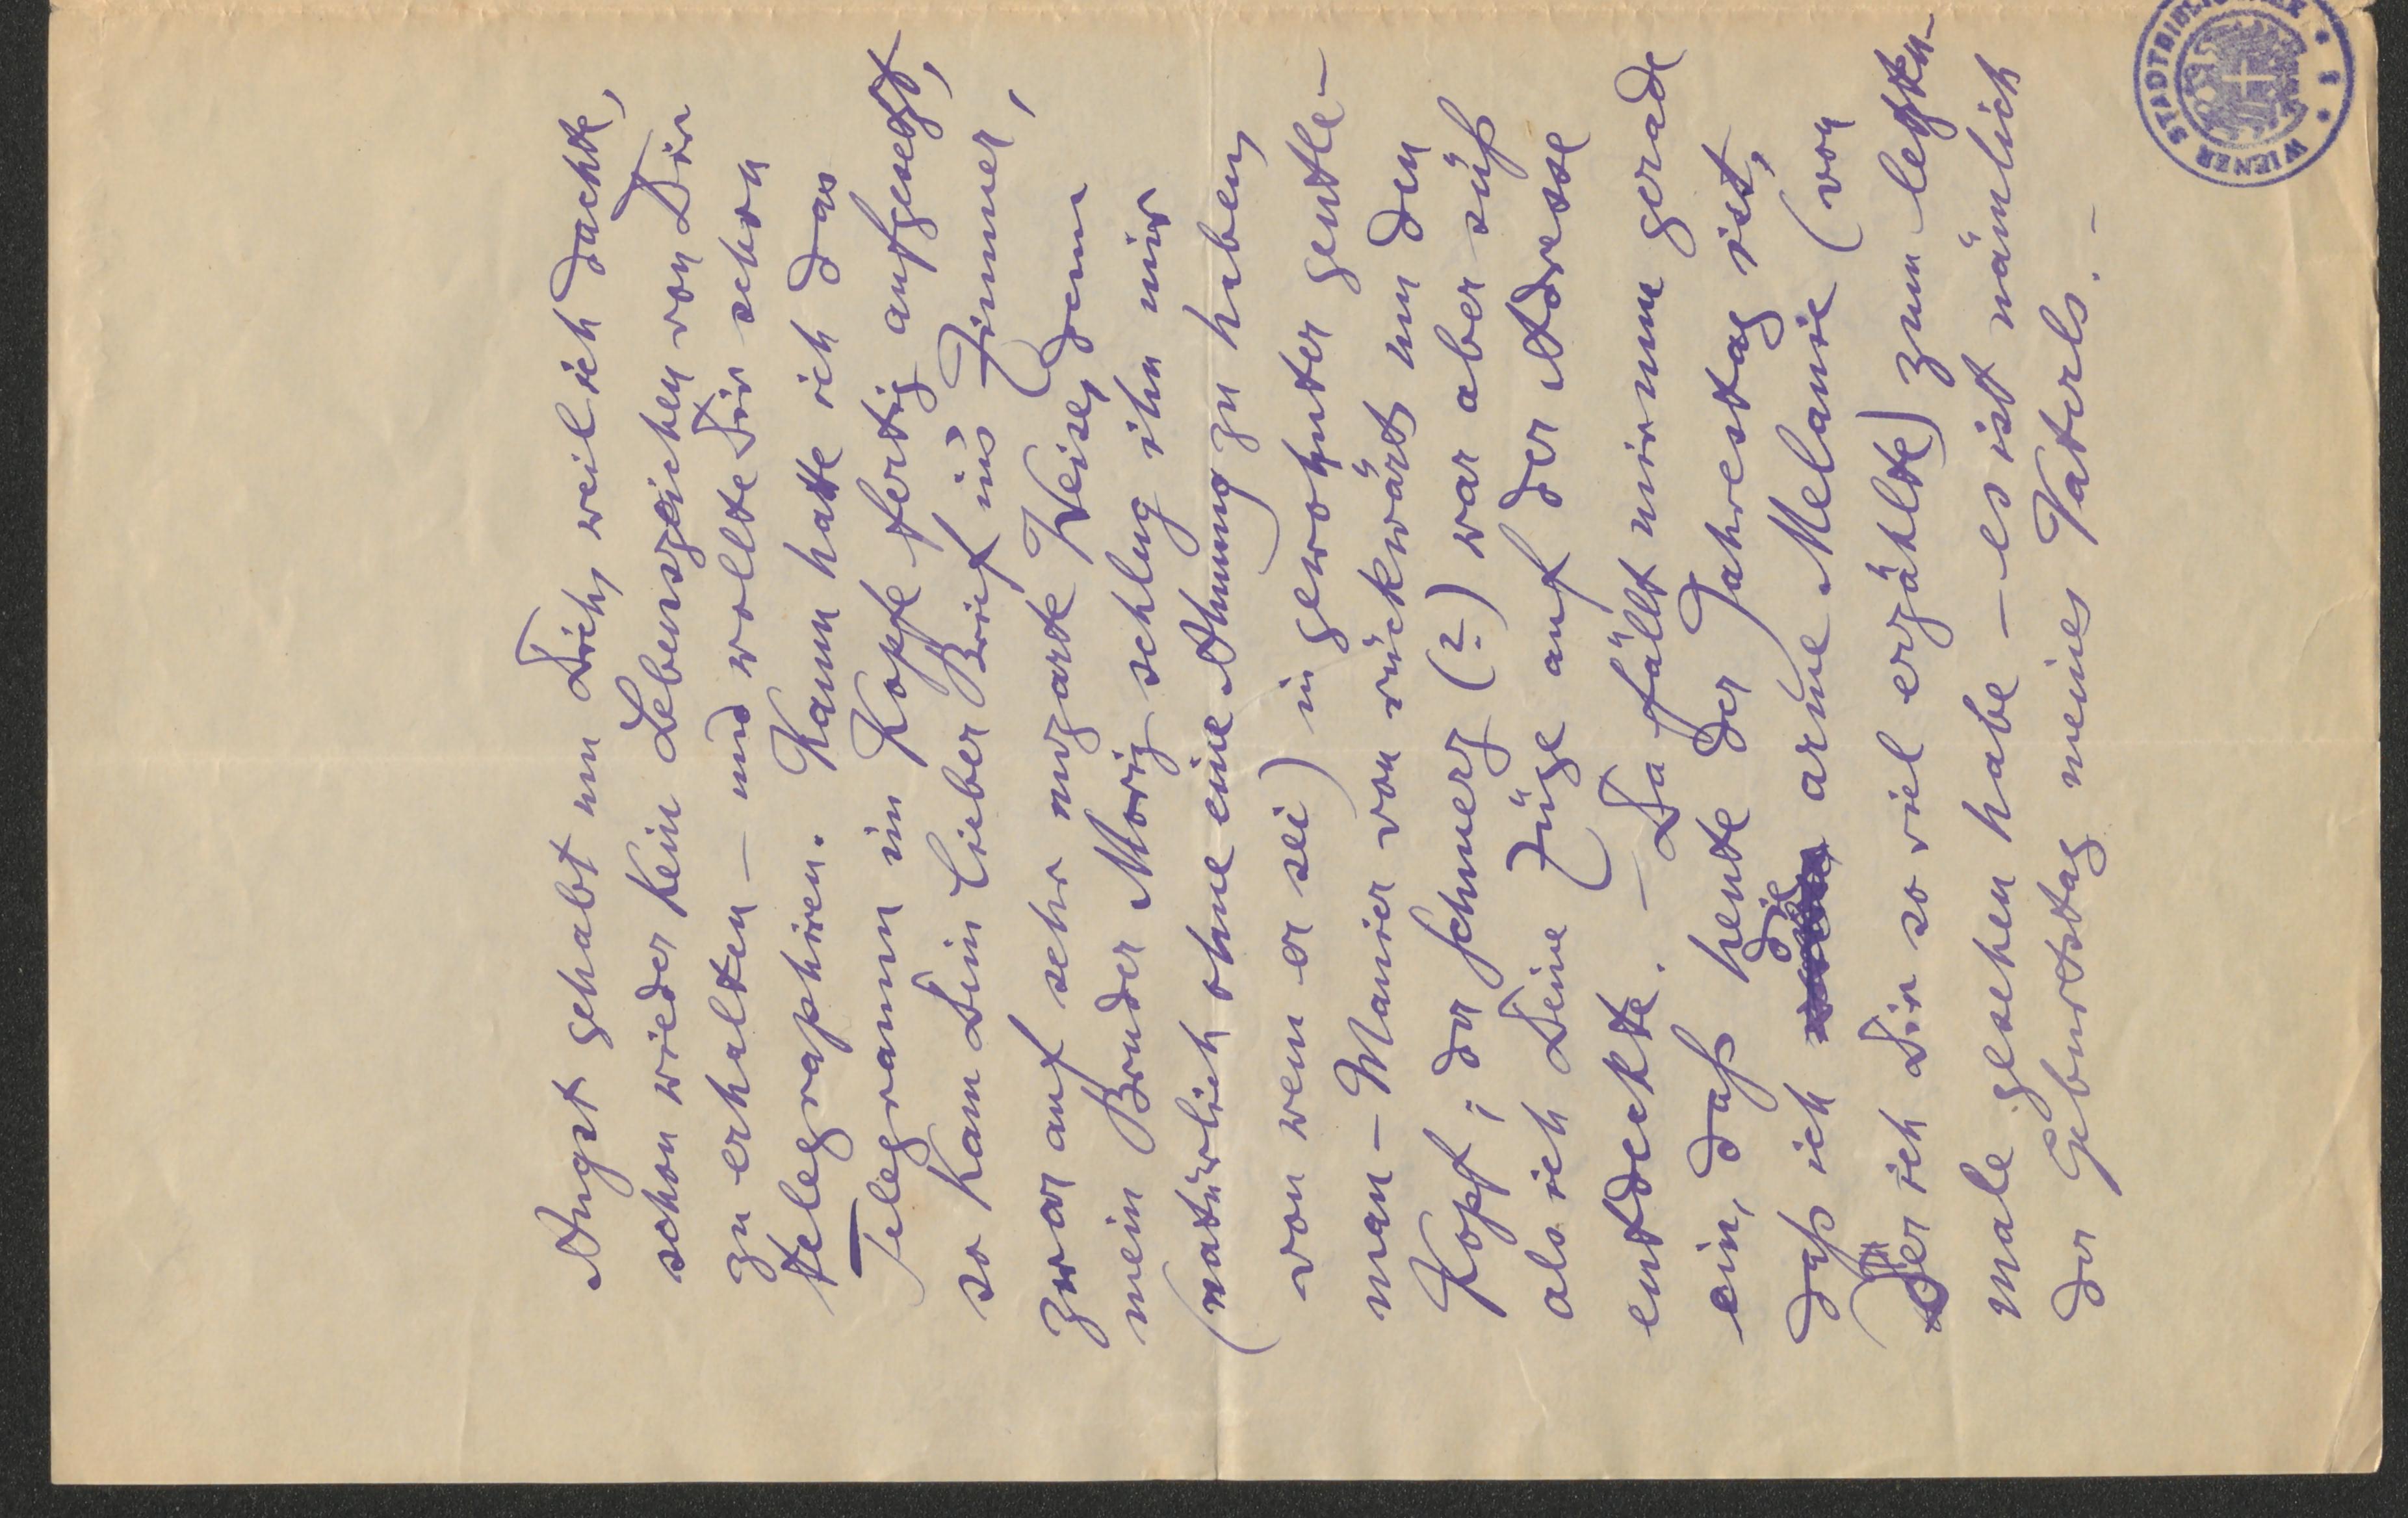 Angst gehabt um Dich, weil ich dachte,
schon wieder kein Lebenszeichen von Dir
zu erhalten – und wollte Dir schon
telegraphiren. Kaum hatte ich das
Telegramm im Kopfe fertig aufgesetzt,
so kam Dein lieber Brief in's Zimmer,
zwar auf sehr unzarte Weise, (denn
mein Bruder Moriz schlug ihn mir
(natürlich ohne eine Ahnung zu haben,
von wem er sei) in gewohnter gentle-
man-Manier von rückwärts um den
Kopf; der Schmerz (?) war aber süß
als ich Deine Züge auf der Adresse
entdeckte. – Da fällt mir nun gerade
ein, daß heute der Jahrestag ist,
daß ich die arme Melanie (von
der ich Dir so viel erzählte) zum letzten-
male gesehen habe – es ist nämlich
der Geburtstag meines Vaters. –
WIENER STADTBIBLIOTHEK